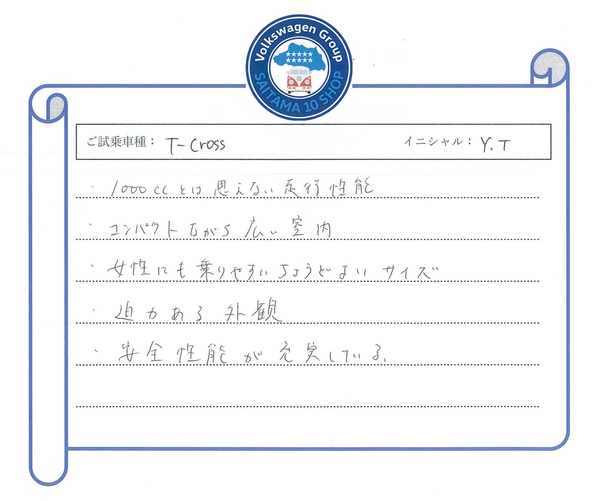 Volkswagen Group
SAITAMA 10 SHOP
ご試乗車種: T-Cross イニシャル: Y.T
・1000ccとは思えない走行性能
・コンパクトながら広い室内
・女性にも乗りやすいちょうどよいサイズ
・迫力ある外観
・安全性能が充実している。